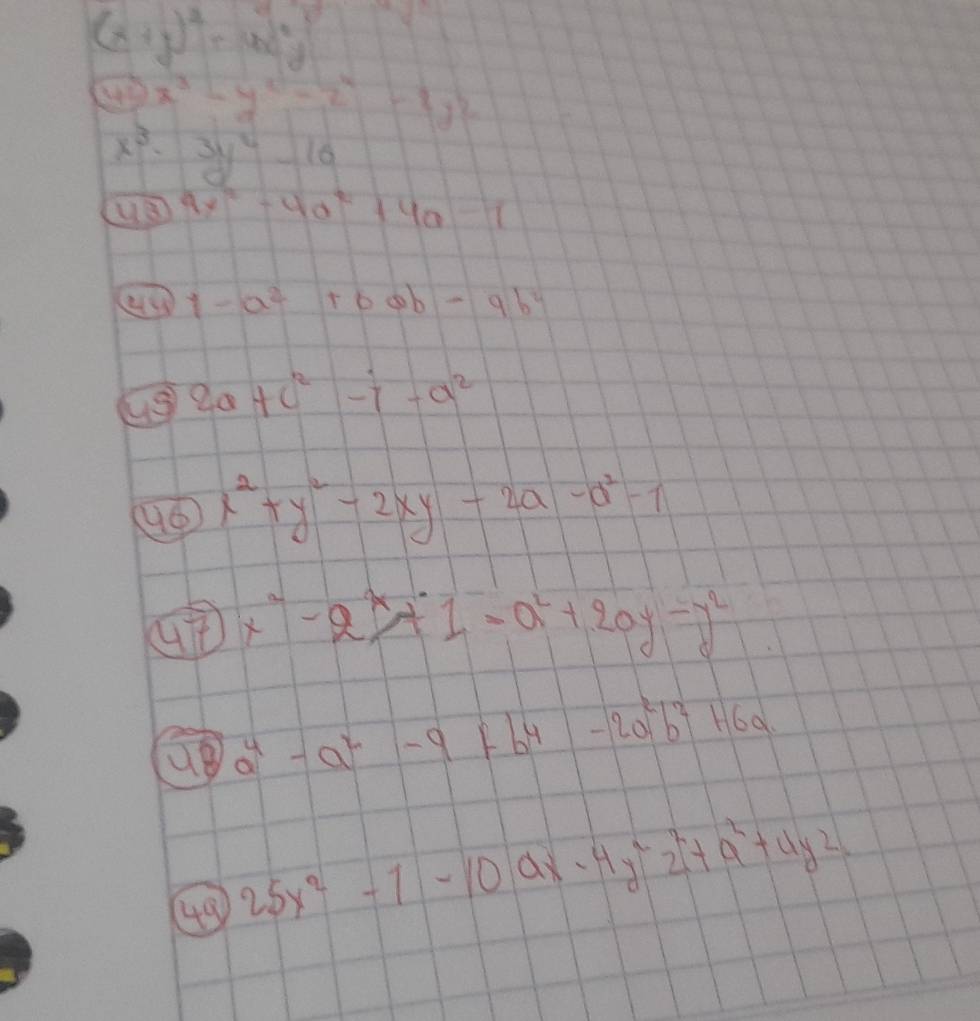 (x+y)² -
42 x² - y² - z² -
x³ - 3y² - 16
43 9x² - 4a² + 4a - 1
44 1 - a² + 6ab - 9b²
45 2a + c² - 1 - a²
46 x² + y² - 2xy + 2a - a² - 1
47 x² - 2x + 1 - a² + 2ay - y²
48 a⁴ - a² - 9 + b⁴ - 2a²b² + 6a
49 25x² - 1 - 10ax - 4y²z² + a² + 4yz